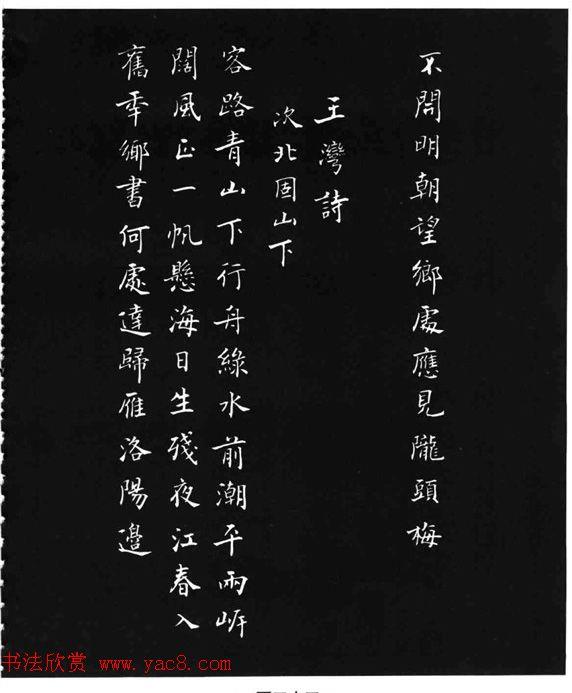 不開明朝望鄉處應見隴頭梅
王灣詩
次北固山下
客路青山下行舟綠水前潮平兩岸
闊風正一帆懸海日生殘夜江春入
舊年鄉書何處達歸雁洛陽邊
书法欣赏 www.yac8.com